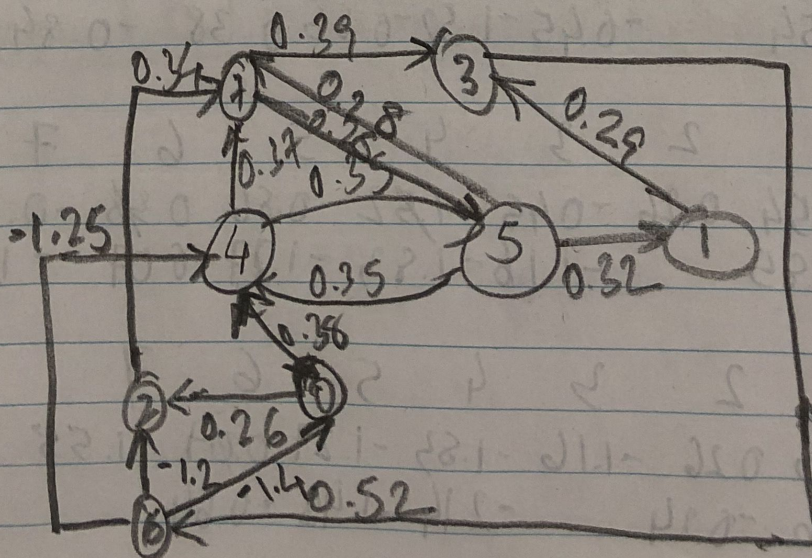 0.39
3
0.34
7
0.28
0.28
0.29
0.37
0.35
-1.25
4
5
1
0.35
0.32
0.38
0
2
0.26
-1.2
-1.40
0.52
6